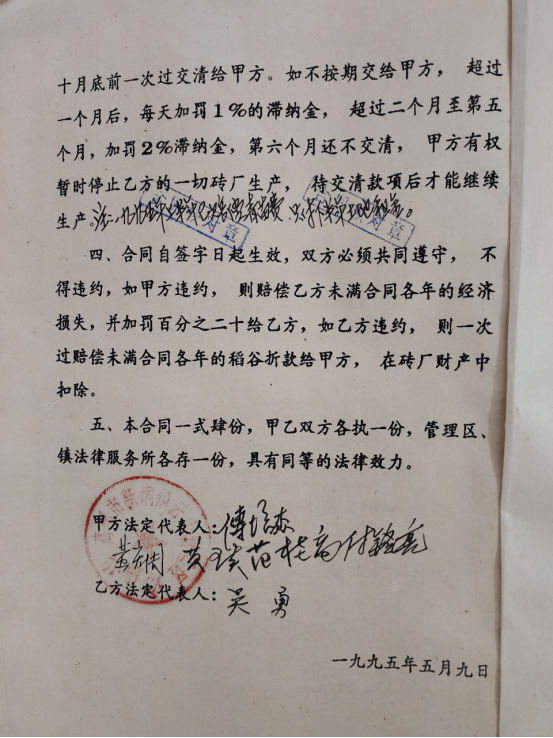 十月底前一次过交清给甲方。如不按期交给甲方，超过
一个月后，每天加罚1%的滞纳金，超过二个月至第五
个月，加罚2%滞纳金，第六个月还不交清，甲方有权
暂时停止乙方的一切砖厂生产，待交清款项后才能继续
生产。注：一九九五年
对章
对章
四、合同自签字日起生效，双方必须共同遵守，不
得违约，如甲方违约，则赔偿乙方未满合同各年的经济
损失，并加罚百分之二十给乙方，如乙方违约，则一次
过赔偿未满合同各年的稻谷折款给甲方，在砖厂财产中
扣除。
五、本合同一式肆份，甲乙双方各执一份，管理区、
镇法律服务所各存一份，具有同等的法律效力。
甲方法定代表人：
乙方法定代表人：吴勇
一九九五年五月九日